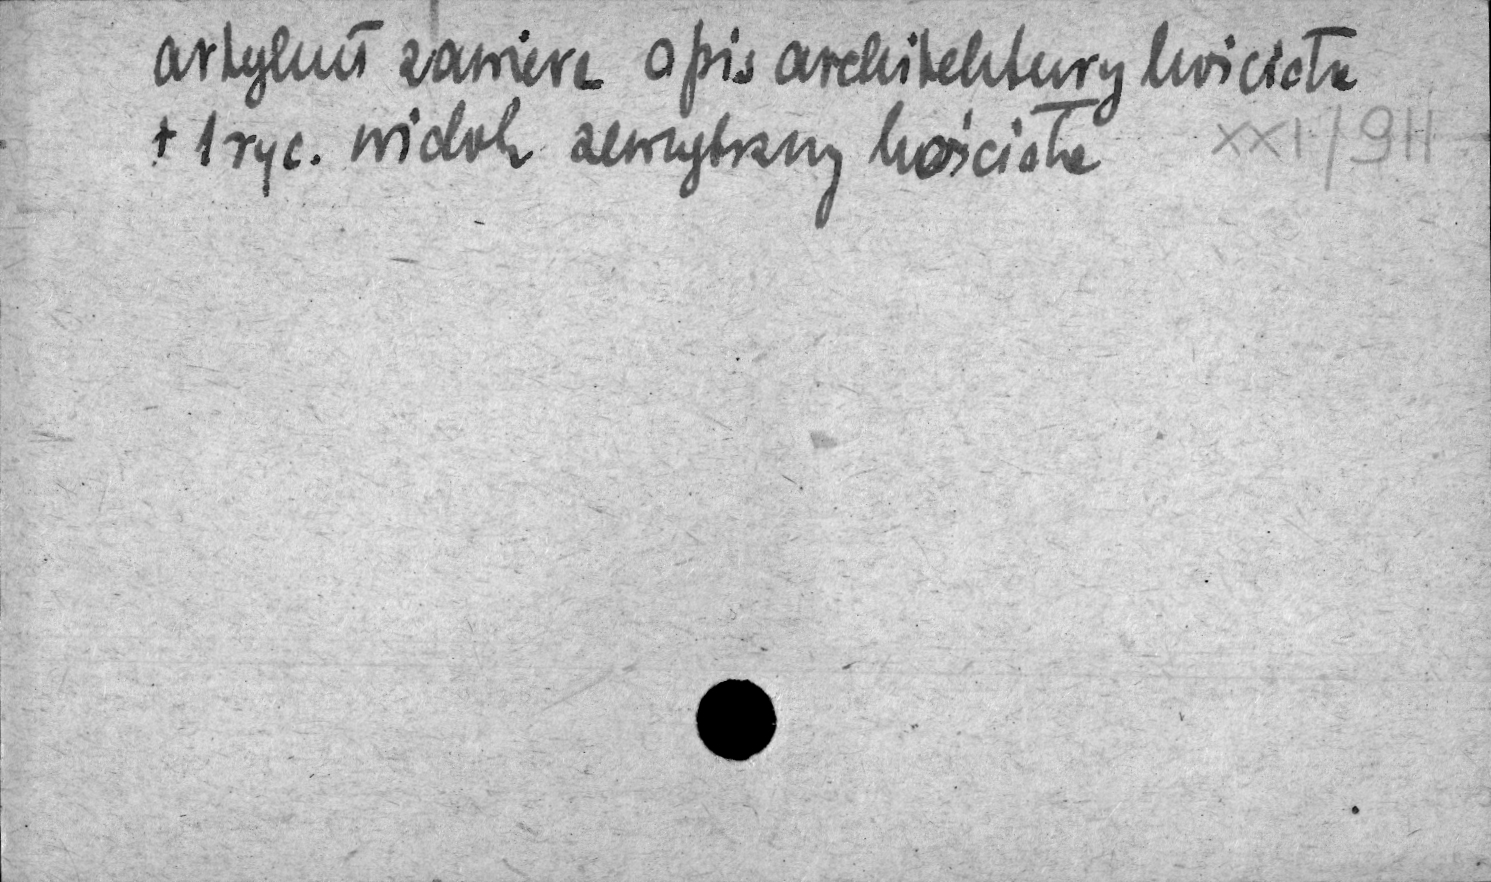 artykuł zawiera opis architektury kościoła
+ 1 ryc. widok zewnętrzny kościoła XXI/911